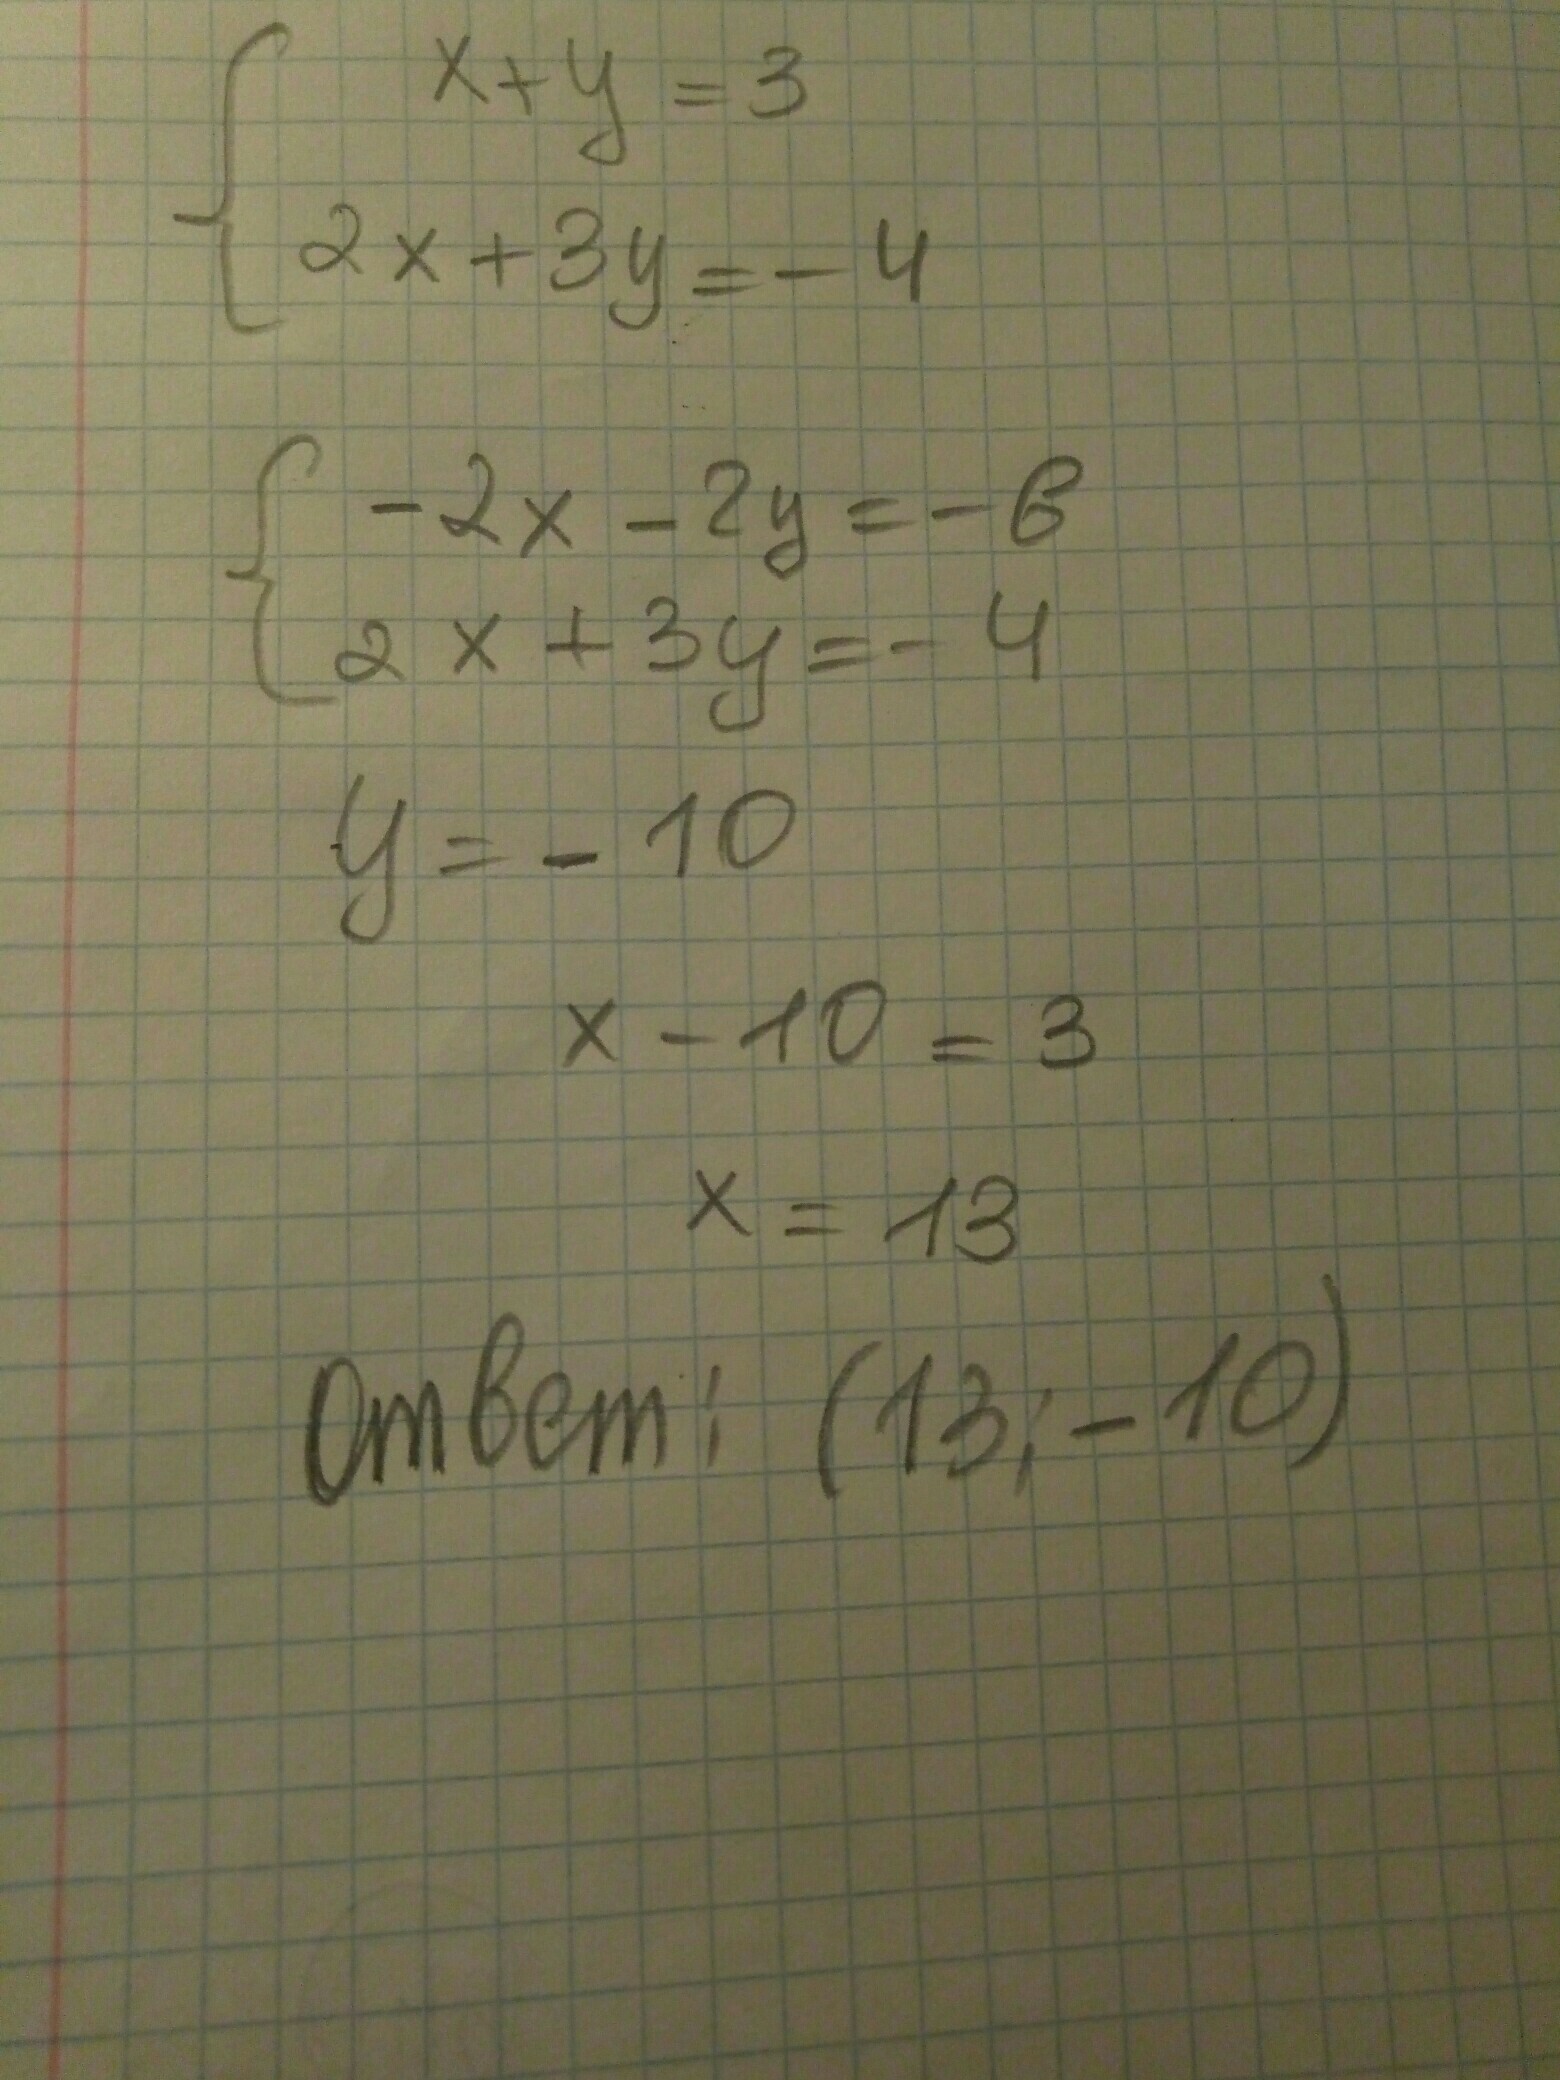 x+y=3
2x+3y=-4
-2x-2y=-6
2x+3y=-4
y=-10
x-10=3
x=13
Ответ: (13;-10)